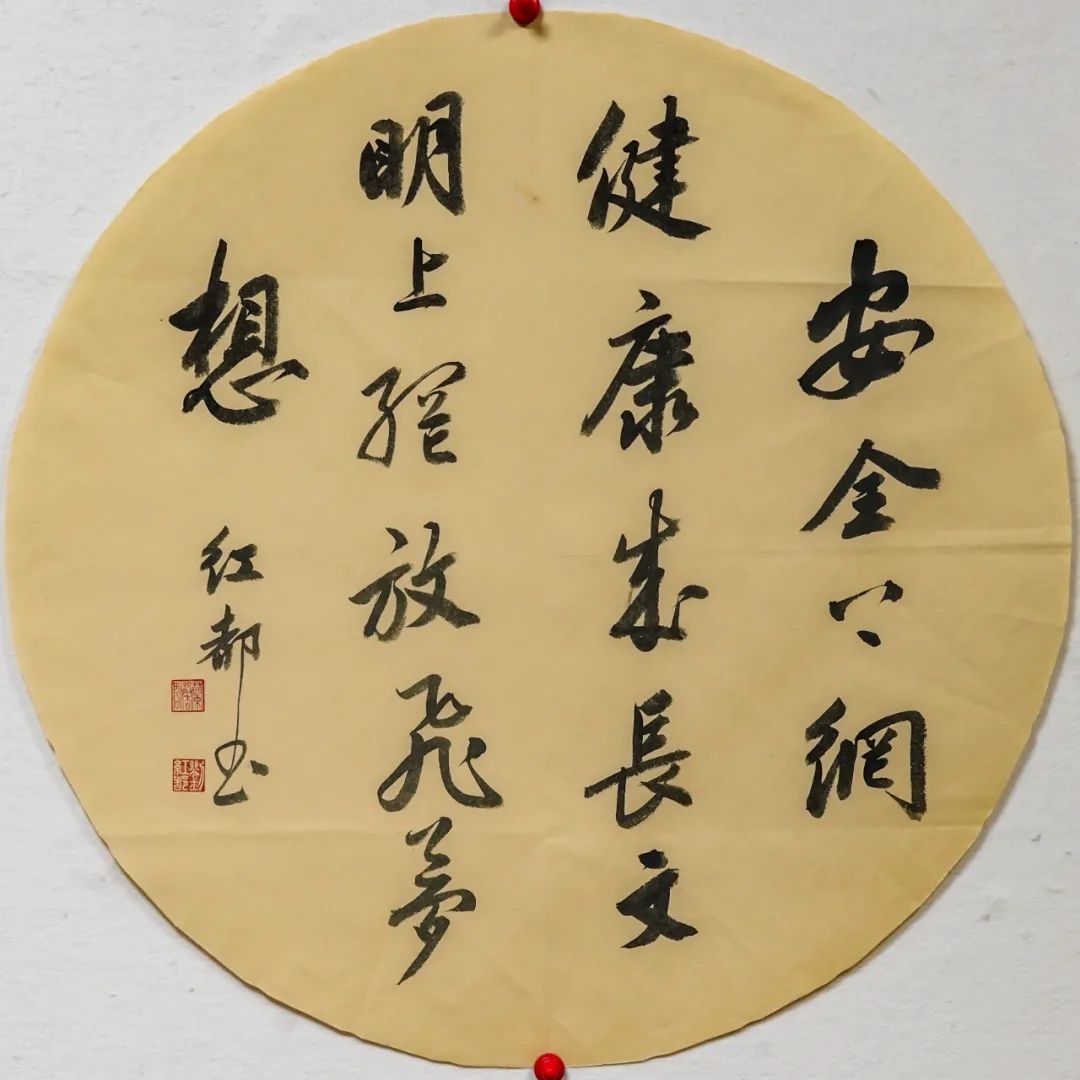 安全上網
健康成長文
明上網放飛夢
想
红都书
劉紅都